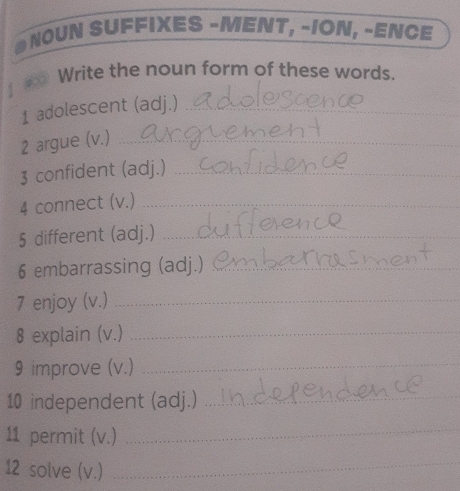 NOUN SUFFIXES -MENT, -ION, -ENCE
Write the noun form of these words.
1 adolescent (adj.) adolescence
2 argue (v.) arguement
3 confident (adj.) confidence
4 connect (v.)
5 different (adj.) difference
6 embarrassing (adj.) embarrasment
7 enjoy (v.)
8 explain (v.)
9 improve (v.)
10 independent (adj.) independence
11 permit (v.)
12 solve (v.)